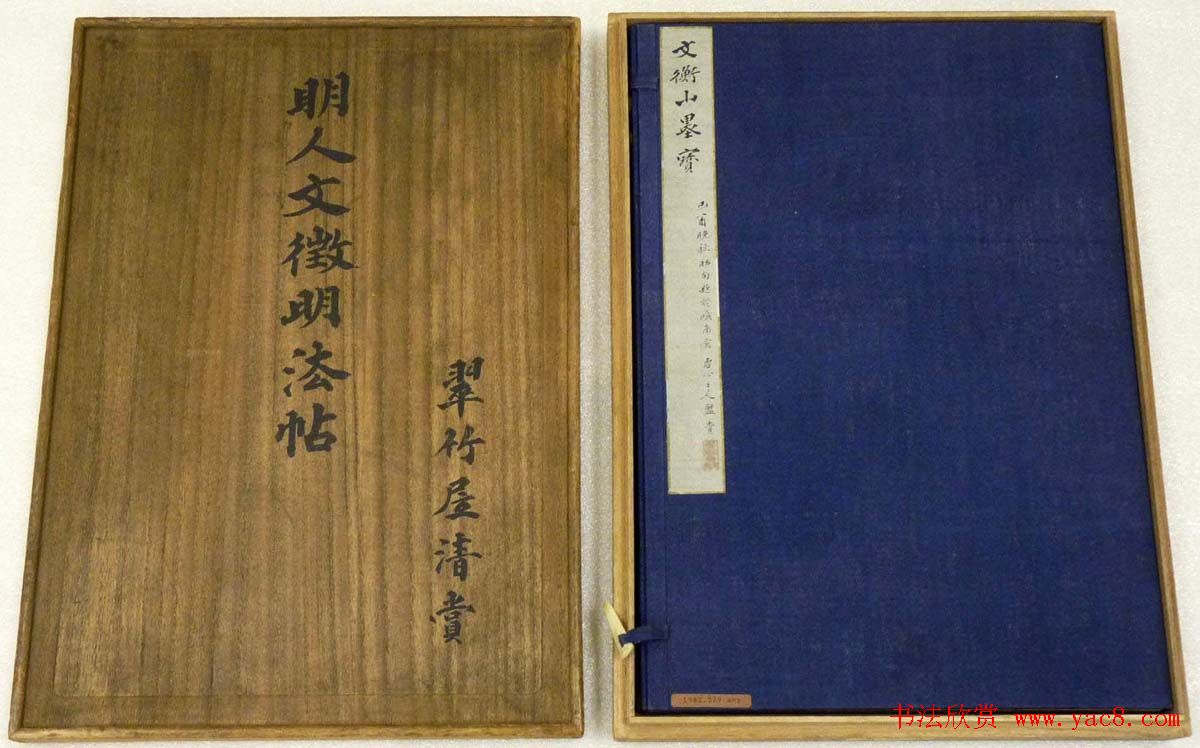 明人文徵明法帖
翠竹屋清賞
文衡山墨寶
己酉晚秋
書法欣赏 www.yac8.com